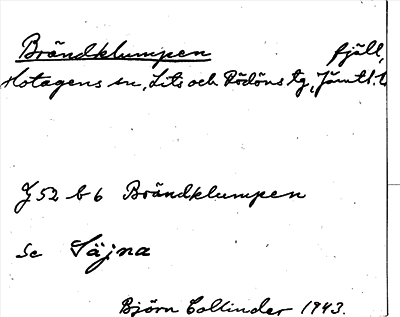 Brändklumpen fjäll,
Hotagens sn, Lits och Rödöns tg, Jämtl. l.
G 52 b 6 Brändklumpen
Se Säjna
Björn Collinder 1943.